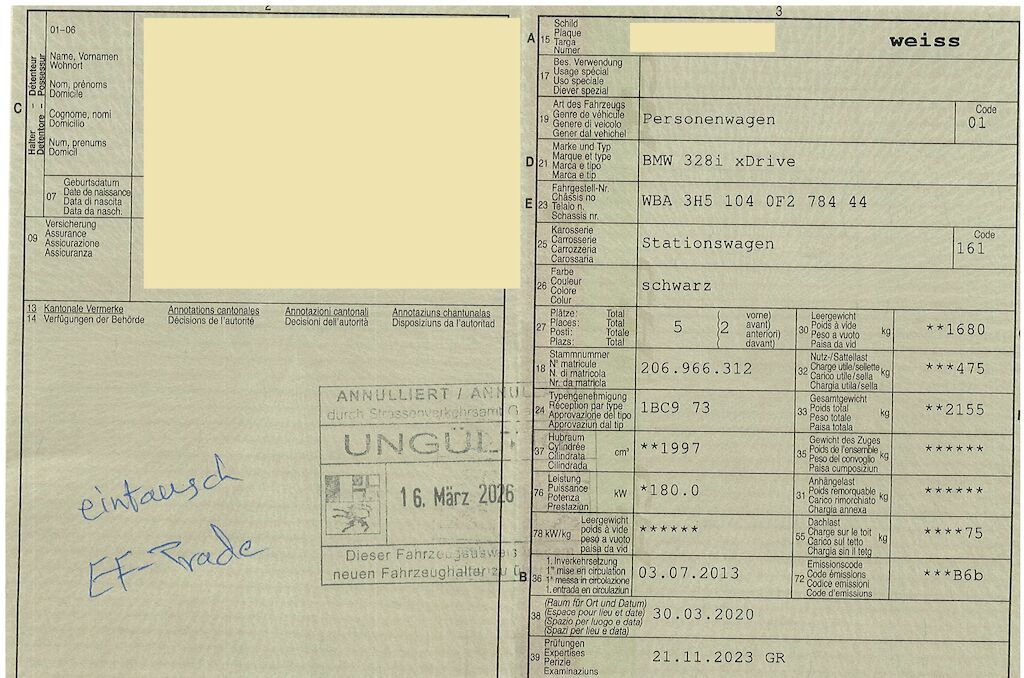 2
01-06
Name, Vornamen
Wohnort
Nom, prénoms
Domicile
Cognome, nomi
Domicilio
Num, prenums
Domicil
C
Halter – Détenteur
Detentore – Possessur
07
Geburtsdatum
Date de naissance
Data di nascita
Data da nasch.
09
Versicherung
Assurance
Assicurazione
Assicuranza
13 Kantonale Vermerke Annotations cantonales Annotazioni cantonali Annotaziuns chantunalas
14 Verfügungen der Behörde Décisions de l'autorité Decisioni dell'autorità Disposiziuns da l'autoritad
ANNULLIERT / ANNUL
durch Strassenverkehrsamt G
UNGÜL
16. März 2026
Dieser Fahrzeugausweis
neuen Fahrzeughalter zu
eintausch
EF-Trade
3
A 15 Schild
Plaque
Targa
Numer
weiss
17 Bes. Verwendung
Usage spécial
Uso speciale
Diever spezial
19 Art des Fahrzeugs
Genre de véhicule
Genere di veicolo
Gener dal vehichel
Personenwagen
Code
01
D 21 Marke und Typ
Marque et type
Marca e tipo
Marca e tip
BMW 328i xDrive
E 23 Fahrgestell-Nr.
Châssis no
Telaio n.
Schassis nr.
WBA 3H5 104 0F2 784 44
25 Karosserie
Carrosserie
Carrozzeria
Carossaria
Stationswagen
Code
161
26 Farbe
Couleur
Colore
Colur
schwarz
27 Plätze: Total
Places: Total
Posti: Totale
Plazs: Total
5 (2 vorne)
avant)
anteriori)
davant)
30 Leergewicht
Poids à vide
Peso a vuoto
Paisa da vid
kg
**1680
18 Stammnummer
N° matricule
N. di matricola
Nr. da matricla
206.966.312
32 Nutz-/Sattellast
Charge utile/sellette
Carico utile/sella
Chargia utila/sella
kg
***475
24 Typengenehmigung
Réception par type
Approvazione del tipo
Approvaziun dal tip
1BC9 73
33 Gesamtgewicht
Poids total
Peso totale
Paisa totala
kg
**2155
37 Hubraum
Cylindrée
Cilindrata
Cilindrada
cm³
**1997
35 Gewicht des Zuges
Poids de l'ensemble
Peso del convoglio
Paisa cumposiziun
kg
******
76 Leistung
Puissance
Potenza
Prestaziun
kW
*180.0
31 Anhängelast
Poids remorquable
Carico rimorchiato
Chargia annexa
kg
******
78 kW/kg Leergewicht
poids à vide
peso a vuoto
paisa da vid
******
55 Dachlast
Charge sur le toit
Carico sul tetto
Chargia sin il tetg
kg
****75
B 36 1. Inverkehrsetzung
1re mise en circulation
1a messa in circolazione
1. entrada en circulaziun
03.07.2013
72 Emissionscode
Code émissions
Codice emissioni
Code d'emissiuns
***B6b
38 (Raum für Ort und Datum)
(Espace pour lieu et date)
(Spazio per luogo e data)
(Spazi per lieu e data)
30.03.2020
39 Prüfungen
Expertises
Perizie
Examinaziuns
21.11.2023 GR